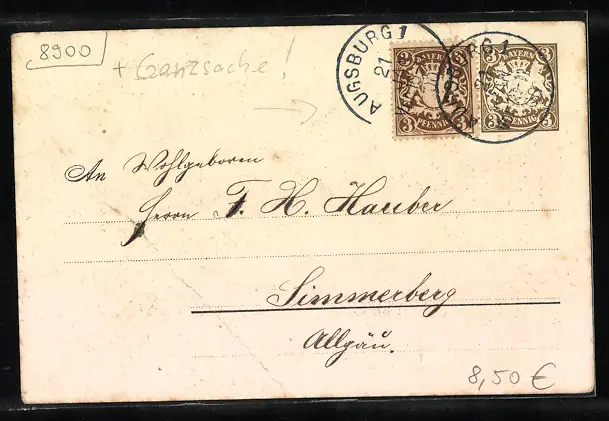 8900
+ Ganzsache!
AUGSBURG 1
21
BAYERN
3 3
PFENNIG
BAYERN
3 3
PFENNIG
An Wohlgeboren
Herrn F. H. Hauber
Simmerberg
Allgäu.
8,50 €